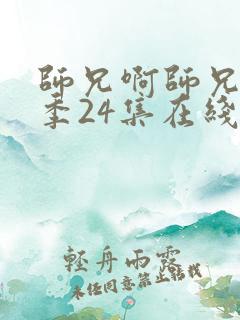 師兄啊師兄
季24集在綫
輕舟雨露
未经同意禁止转载